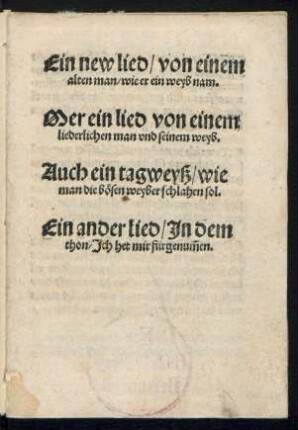 Ein new lied/ von einem
alten man/ wie er ein weyß nam.
Mer ein lied von einem
liederlichen man vnd seinem weyb.
Auch ein tagweyß/ wie
man die bösen weyber schlahen sol.
Ein ander lied/ In dem
thon/ Ich het mir fürgenum̄en.